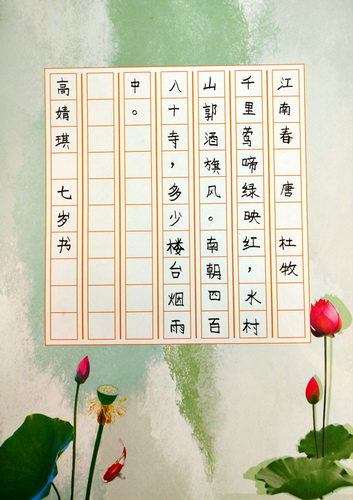 江南春 唐 杜牧
千里莺啼绿映红，水村
山郭酒旗风。南朝四百
八十寺，多少楼台烟雨
中。
高婧琪 七岁书